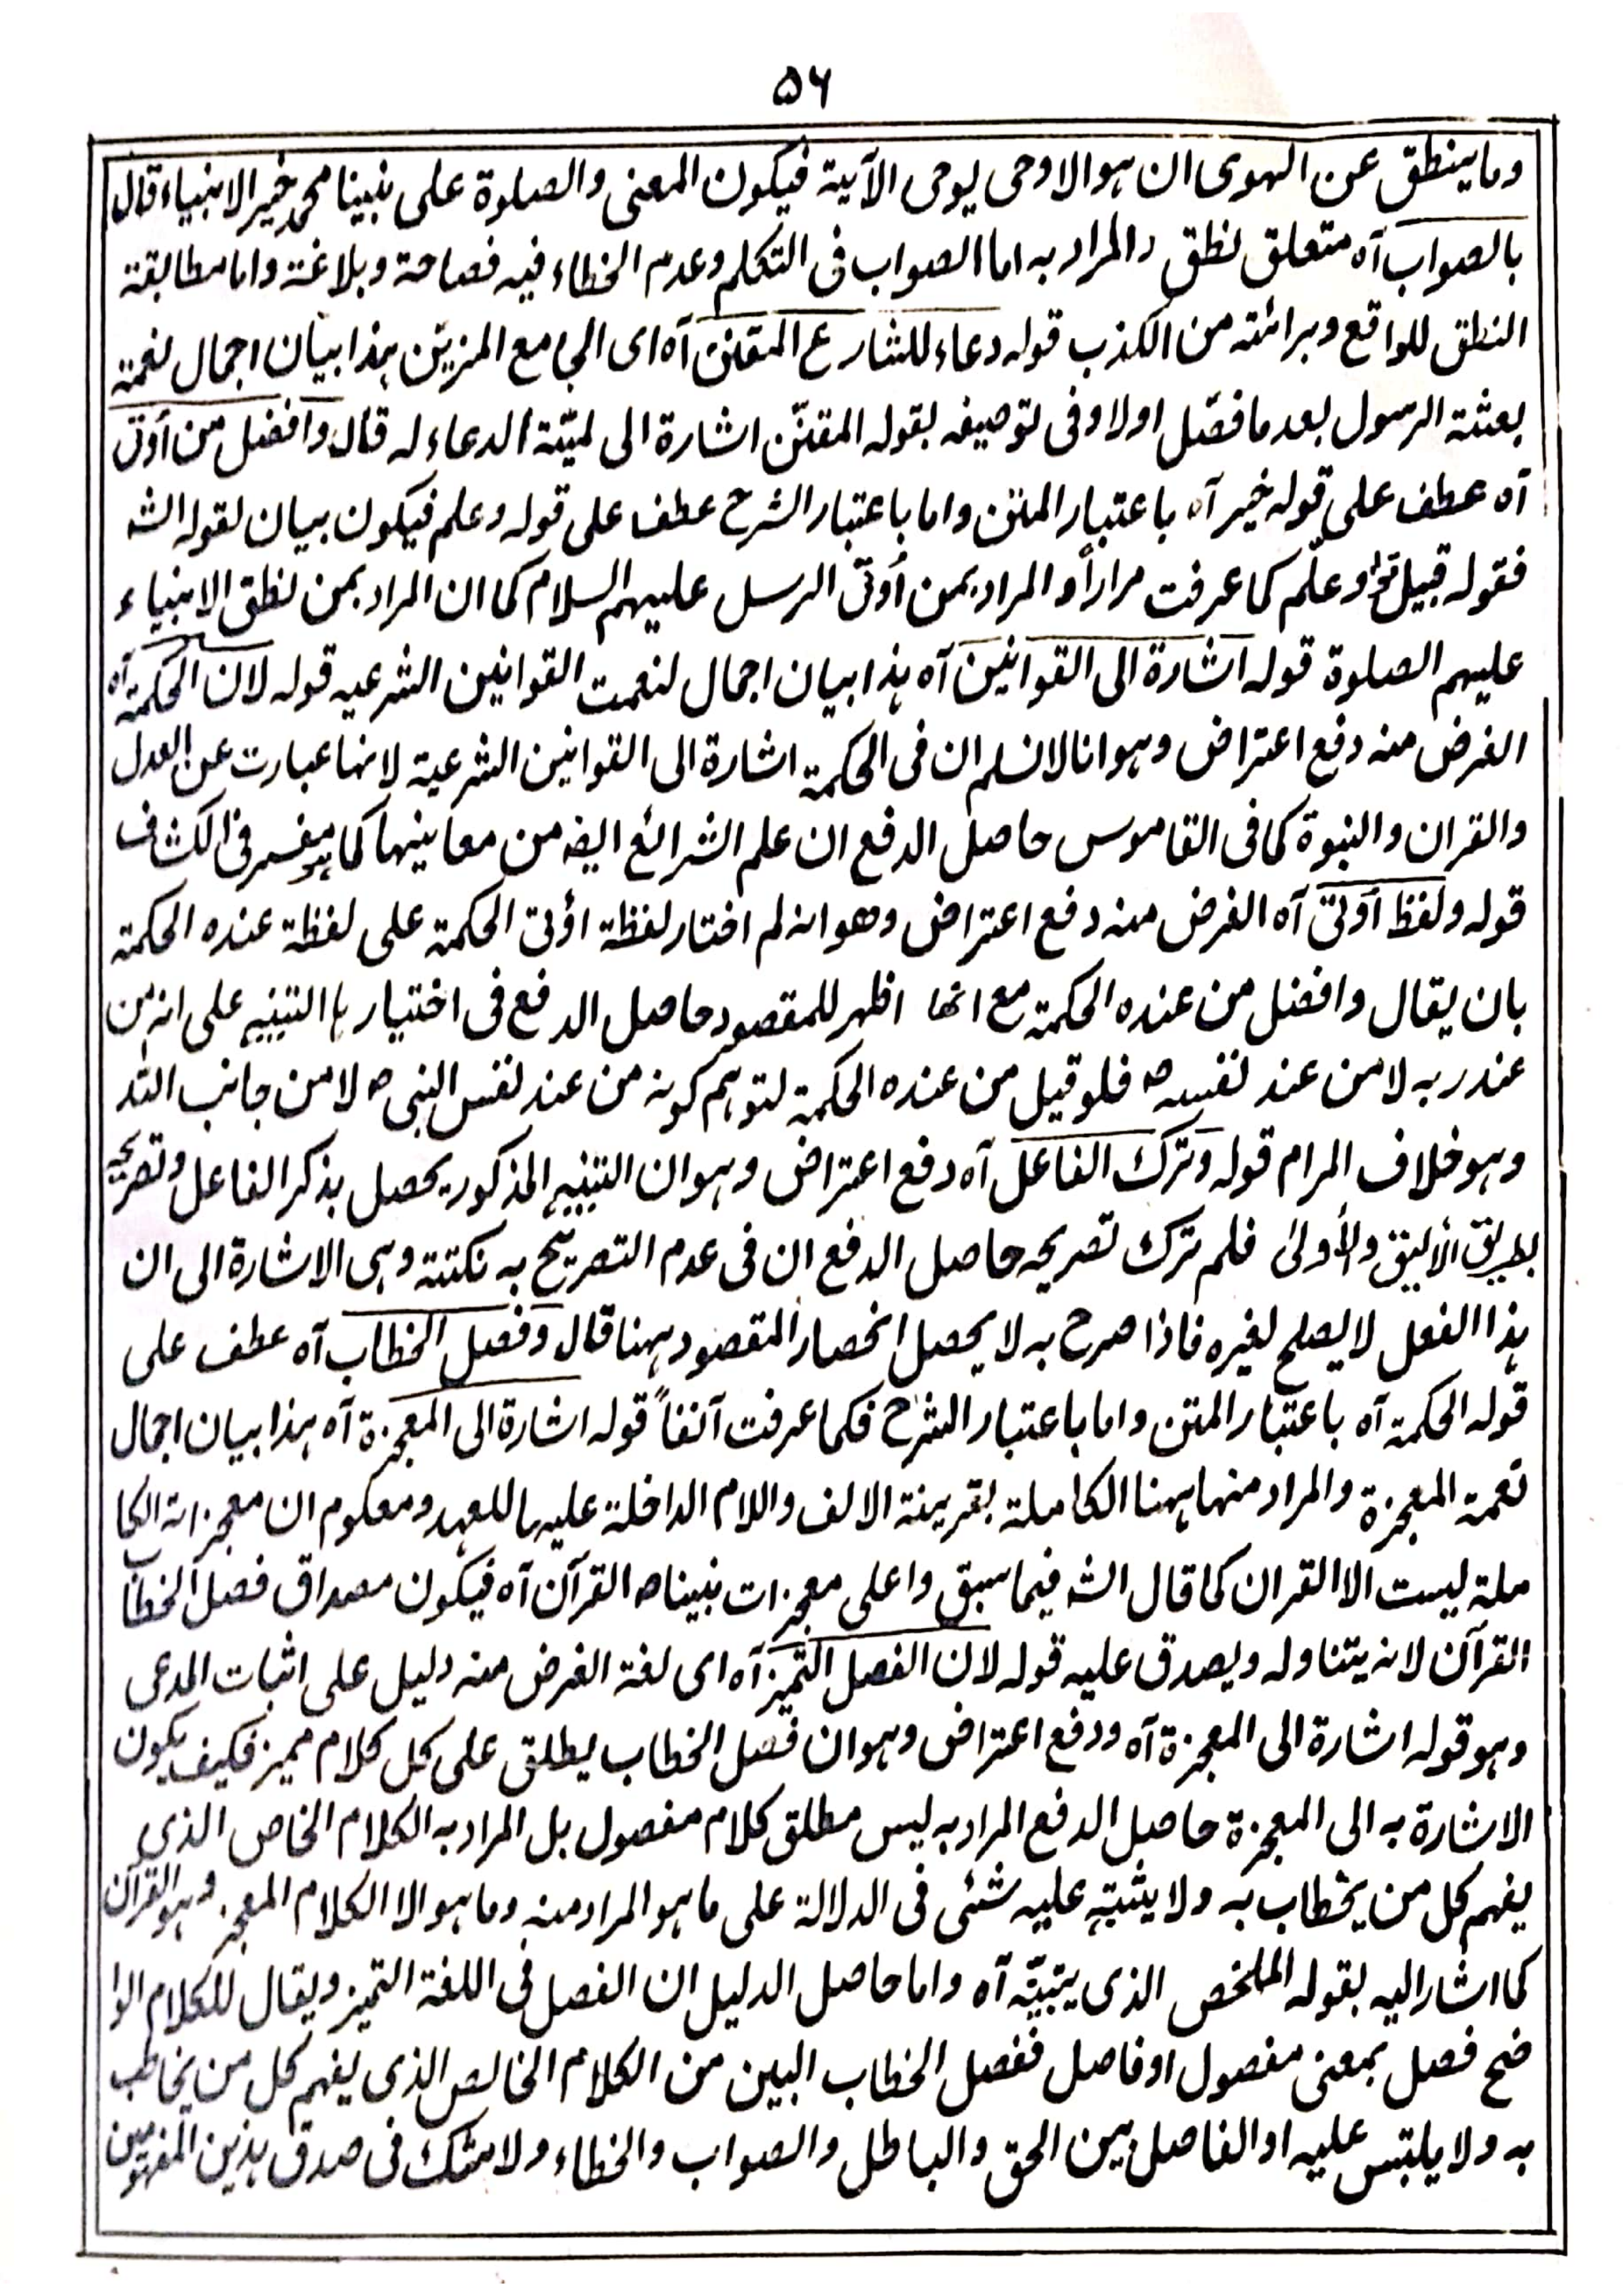 ۵۶
وما ينطق عن الهوى ان هو الا وحى يوحى الآية فيكون المعنى والصلوة على نبينا محمد خير الانبياء قال
بالصواب آه متعلق نطق والمراد به اما الصواب فى التكلم وعدم الخطاء فيه فصاحة وبلاغة واما مطابقة
النطق للواقع وبرائته من الكذب قوله دعاء للشارع المقنن آه اى الجامع المزين هذا بيان اجمال نعمة
بعثة الرسول بعد ما فصّل اولا وفى توصيفه بقوله المقنّن اشارة الى لميّة الدعاء له قال وافضل من أوتى
آه عطف على قوله خير آه باعتبار المتن واما باعتبار الشرح عطف على قوله وعلم فيكون بيان لقوله الشـ
فقوله قبيل هذا وعلّم كما عرفت مراراً والمراد بمن أوتى الرسل عليهم السلام كما ان المراد بمن نطق الانبياء
عليهم الصلوة قوله اشارة الى القوانين آه هذا بيان اجمال لنعمت القوانين الشرعيه قوله لان الحكمة آه
الغرض منه دفع اعتراض وهو انا لا نسلم ان فى الحكمة اشارة الى القوانين الشرعية لانها عبارت عن العدل
والقران والنبوة كما فى القاموس حاصل الدفع ان علم الشرائع ايضه من معانيها كما هو مفسر فى الكشاف
قوله ولفظ أوتى آه الغرض منه دفع اعتراض وهو انه لم اختار لفظة اؤتى الحكمة على لفظة عنده الحكمة
بان يقال وافضل من عنده الحكمة مع انها اظهر للمقصود حاصل الدفع فى اختيارها التنبيه على انه من
عند ربه لا من عند نفسه ص فلو قيل من عنده الحكمة لتوهم كونه من عند نفس النبى ص لا من جانب الله
وهو خلاف المرام قوله وترك الفاعل آه دفع اعتراض وهو ان التنبيه المذكور يحصل بذكر الفاعل وتصريحه
بطريق الأليق والأولىٰ فلم ترك تصريحه حاصل الدفع ان فى عدم التصريح به نكتة وهى الاشارة الى ان
هذا الفعل لا يصلح لغيره فاذا صرح به لا يحصل انحصار المقصود ههنا قال وفصل الخطاب آه عطف على
قوله الحكمة آه باعتبار المتن واما باعتبار الشرح فكما عرفت آنفاً قوله اشارة الى المعجزة آه هذا بيان اجمال
نعمة المعجزة والمراد منها ههنا الكاملة بقرينة الالف واللام الداخلة عليها للعهد ومعلوم ان معجزاته الكا
ملة ليست الا القران كما قال الشـ فيما سبق واعلى معجزات نبينا ص القرآن آه فيكون مصداق فصل الخطاب
القرآن لانه يتناوله ويصدق عليه قوله لان الفصل التميز آه اى لغة الغرض منه دليل على اثبات المدعى
وهو قوله اشارة الى المعجزة آه ودفع اعتراض وهو ان فصل الخطاب يطلق على كل كلام مميز فكيف يكون
الاشارة به الى المعجزة حاصل الدفع المراد به ليس مطلق كلام مفصول بل المراد به الكلام الخاص الذى
يفهم كل من يخطاب به ولا يشتبه عليه شئى فى الدلالة على ما هو المراد منه وما هو الا الكلام المعجز وهو القرآن
كما اشار اليه بقوله الملخص الذى يتبيّنه آه واما حاصل الدليل ان الفصل فى اللغة التميز ويقال للكلام الوا
ضح فصل بمعنى مفصول او فاصل ففصل الخطاب البين من الكلام الخالص الذى يفهم كل من يخاطب
به ولا يلتبس عليه او الفاصل بين الحق والباطل والصواب والخطاء ولا شك فى صدق هذين المفهومين